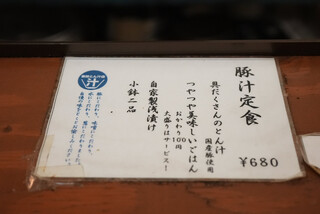 豚汁定食
¥680
具だくさんのとん汁
国産豚使用
つやつや美味しいごはん
おかわり100円
大盛りはサービス!
自家製浅漬け
小鉢二品
汁